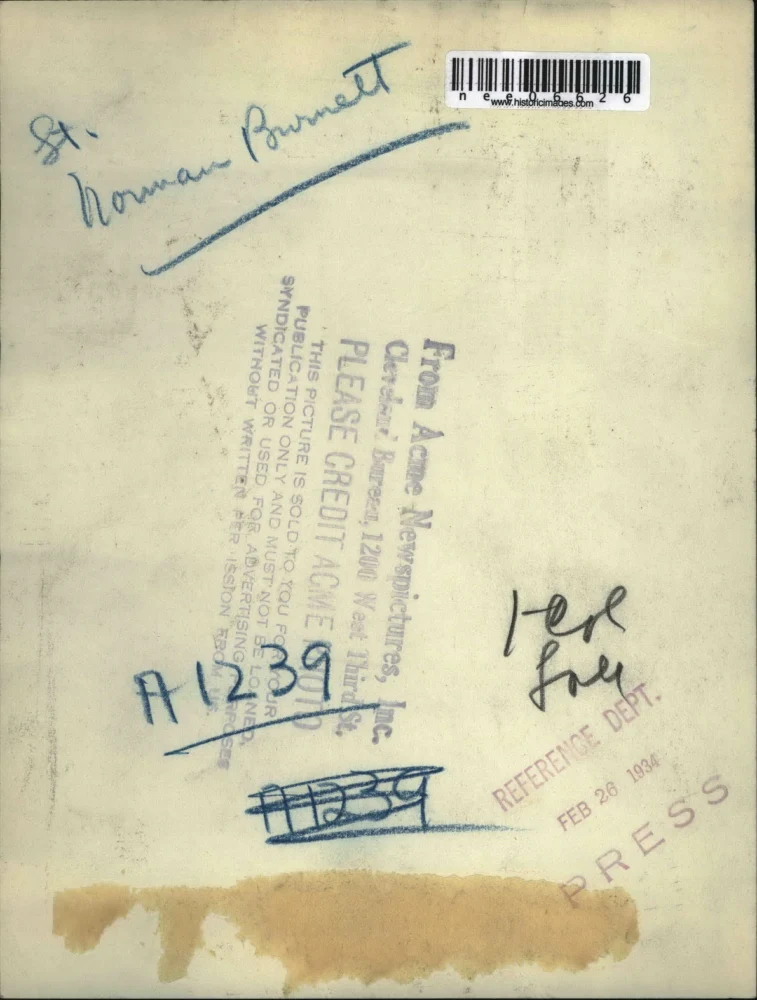 n e e 0 6 6 2 6
www.historicimages.com
St.
Norman Burnett
From Acme Newspictures, Inc.
Cleveland Bureau, 1200 West Third St.
PLEASE CREDIT ACME PHOTO
THIS PICTURE IS SOLD TO YOU FOR YOUR
PUBLICATION ONLY AND MUST NOT BE LOANED,
SYNDICATED OR USED FOR ADVERTISING PURPOSES
WITHOUT WRITTEN PERMISSION FROM US
A1239
A1239
REFERENCE DEPT.
FEB 26 1934
PRESS